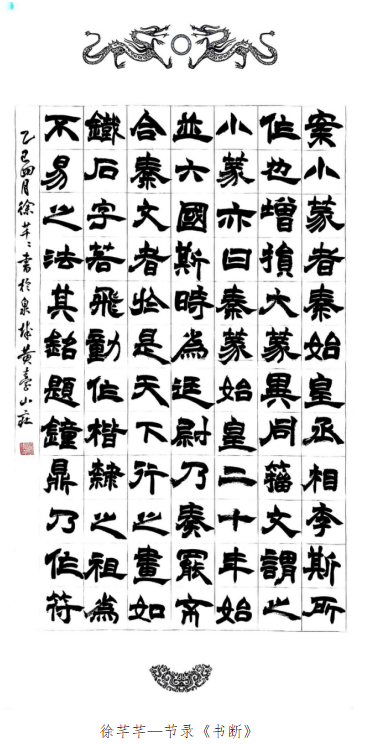 案小篆者秦始皇丞相李斯所
作也增損大篆異同籀文謂之
小篆亦曰秦篆始皇二十年始
並六國斯時為廷尉乃奏罷不
合秦文者於是天下行之畫如
鐵石字若飛動作楷隸之祖為
不易之法其銘題鐘鼎乃作符
乙巳四月徐芊〻書於泉城黄臺山莊
徐芊芊—节录《书断》